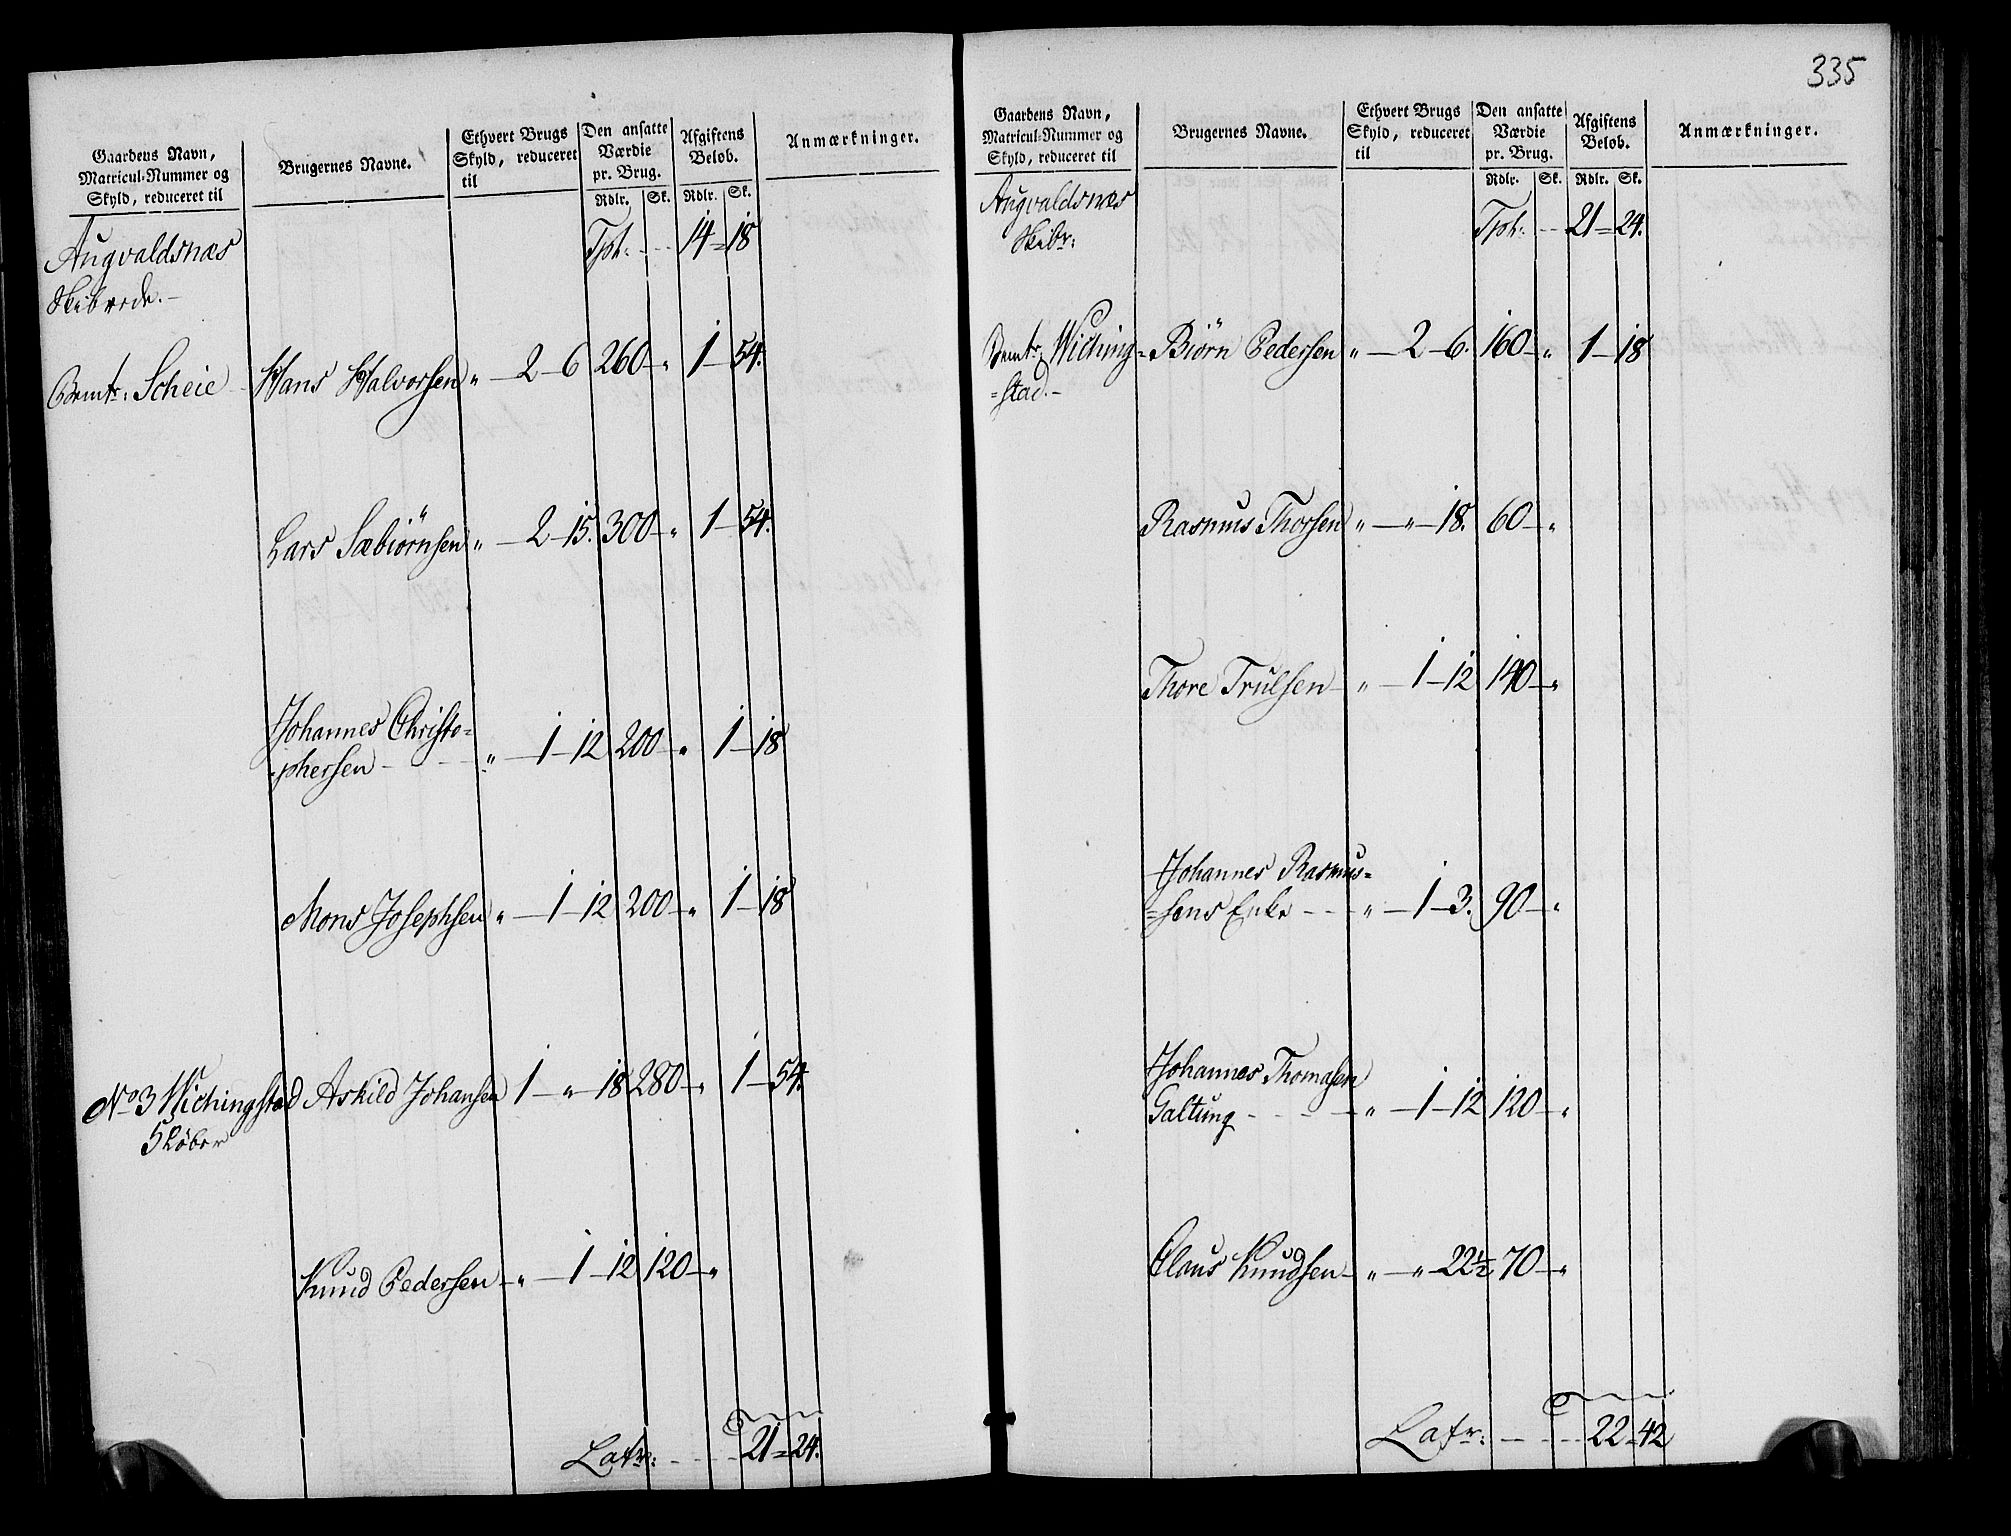 Gaardens Navn,
Matricul-Nummer og
Skyld, reduceret til
Brugernes Navne.
Ethvert Brugs
Skyld, reduceret
til
Den ansatte
Værdie
pr. Brug.
Rdlr. Sk.
Afgiftens
Beløb.
Rdlr. Sk.
Anmærkninger.
Augvaldsnæs
Skibrede.
Tpt: 14 = 18
Scheie Hans Halvorsen " - 2 - 6 260 - " 1 - 54.
Lars Sæbiørnsen " - 2 - 15. 300 - " 1 - 54.
Johannes Christo=
=phersen " - 1 - 12 200 - " 1 - 18
Mons Josephsen " - 1 - 12 200 - " 1 - 18
No 3 Wichingstad Askild Johansen 1 - " - 18 280 - " 1 - 54.
Knud Pedersen - " - 1 - 12 120 - "
Latr: 21 = 24.
335
Gaardens Navn,
Matricul-Nummer og
Skyld, reduceret til
Brugernes Navne.
Ethvert Brugs
Skyld, reduceret
til
Den ansatte
Værdie
pr. Brug.
Rdlr. Sk.
Afgiftens
Beløb.
Rdlr. Sk.
Anmærkninger.
Augvaldsnæs
Skibr:
Tpt: 21 = 24.
Wiching= Biørn Pedersen " - 2 - 6. 160 - " 1 - 18
=stad.-
Rasmus Thorsen " - " - 18. 60 - "
Thore Trulsen - " - 1 - 12 140 - "
Johannes Rasmus=
=sens Enke - - " - 1 - 3. 90 - "
Johannes Thomasen
Galtung - - - " - 1 - 12 120 - "
Claus Knudsen - " - " - 22½ 70 - "
Latr: 22 = 42